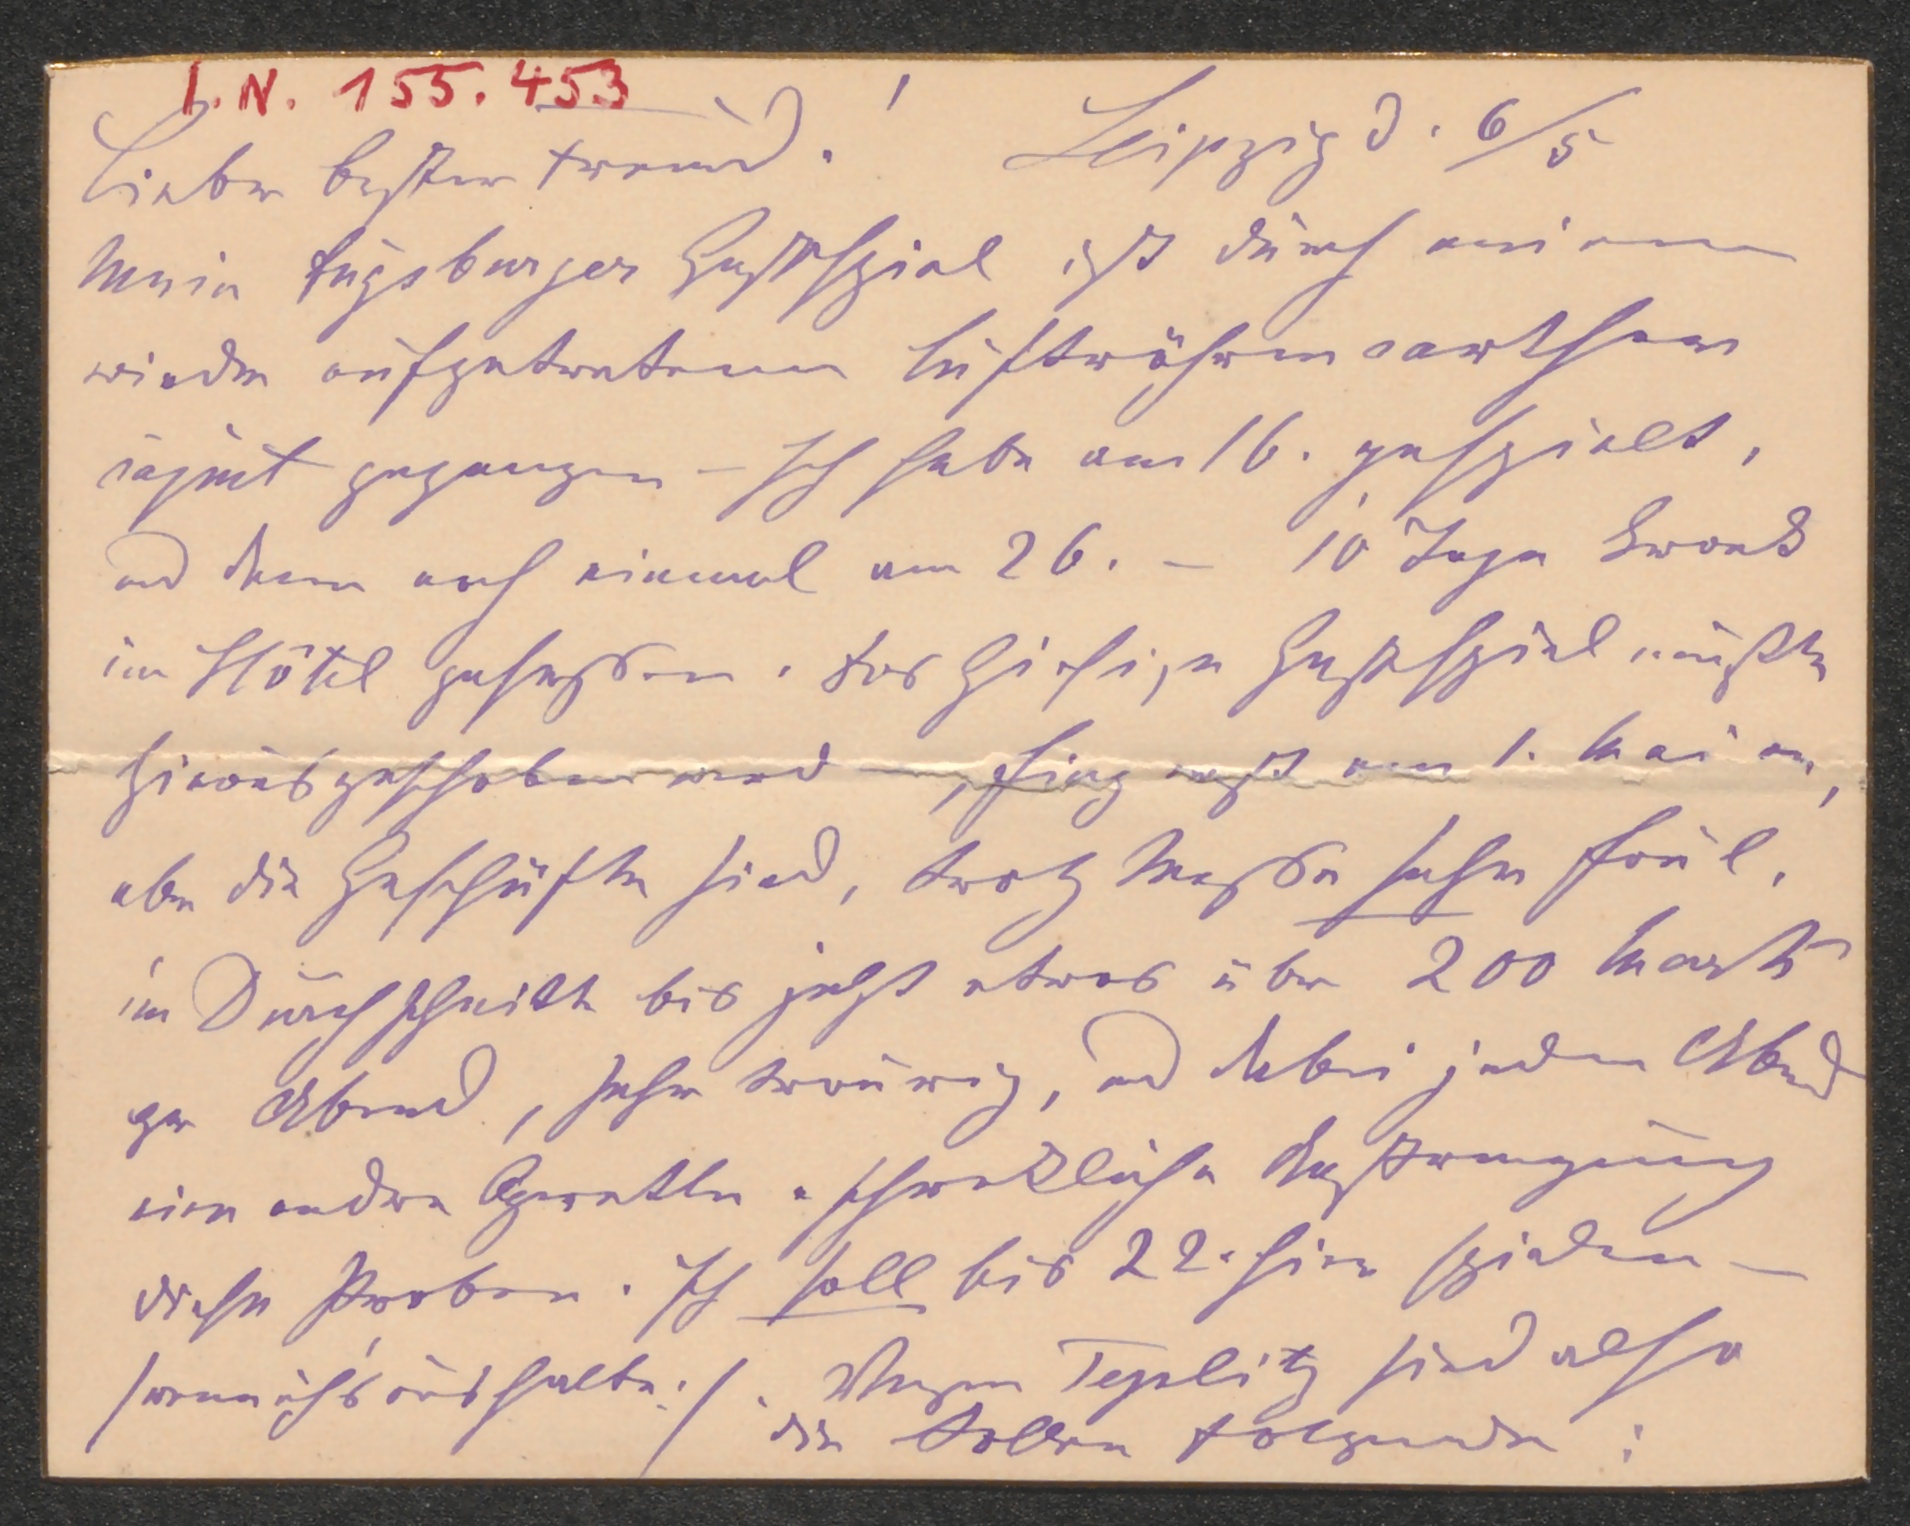 I.N. 155.453
Lieber bester Freund! Leipzig d. 6/5
Mein Augsburger Gastspiel ist durch meinen
wieder aufgetretenen Luftröhrencatarrh
caput gegangen – Ich habe am 16. gespielt,
und dann noch einmal am 26. – 10 Tage krank
im Hôtel gesessen. Das hiesige Gastspiel mußte
hinausgeschoben werd, fing erst am 1. Mai an,
aber die Geschäfte sind, trotz Messe sehr faul,
im Durchschnitt bis jetzt etwas über 200 Mark
per Abend, sehr traurig, und dabei jeden Abend
eine andre Operette. schreckliche Anstrengung
diese Proben. Ich soll bis 22. hier spielen –
/wenn ichs aushalte:/. Wegen Teplitz sind also
die Rollen folgende: